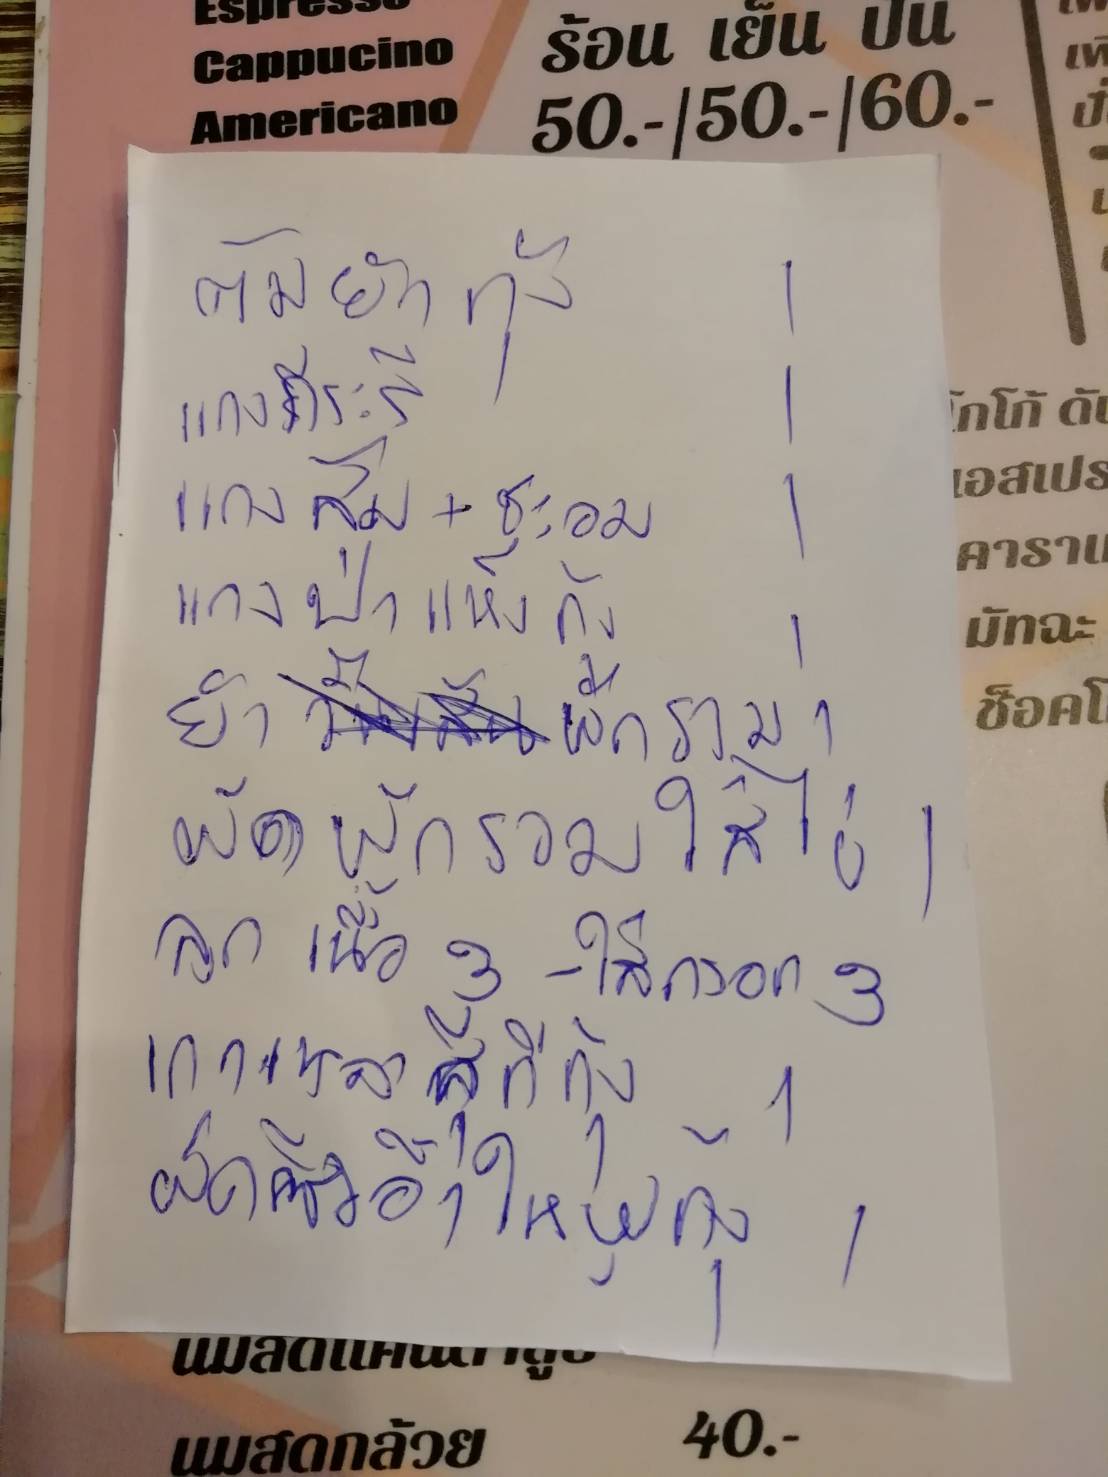 Espresso
Cappucino
Americano
ร้อน เย็น ปั่น
50.-/50.-/60.-
ต้มยำกุ้ง 1
แกงกะหรี่ 1
แกงส้ม + ชะอม 1
แกงป่าแห้งกุ้ง 1
ยำ ผักรวม 1
ผัดผักรวมใส่ไข่ 1
ลูกเนื้อ 3 - ไส้กรอก 3
เกาเหลาสุกี้กุ้ง 1
ผัดซีอิ๊วใหญ่กุ้ง 1
โกโก้
คารา
มัทฉะ
นมสดกล้วย 40.-